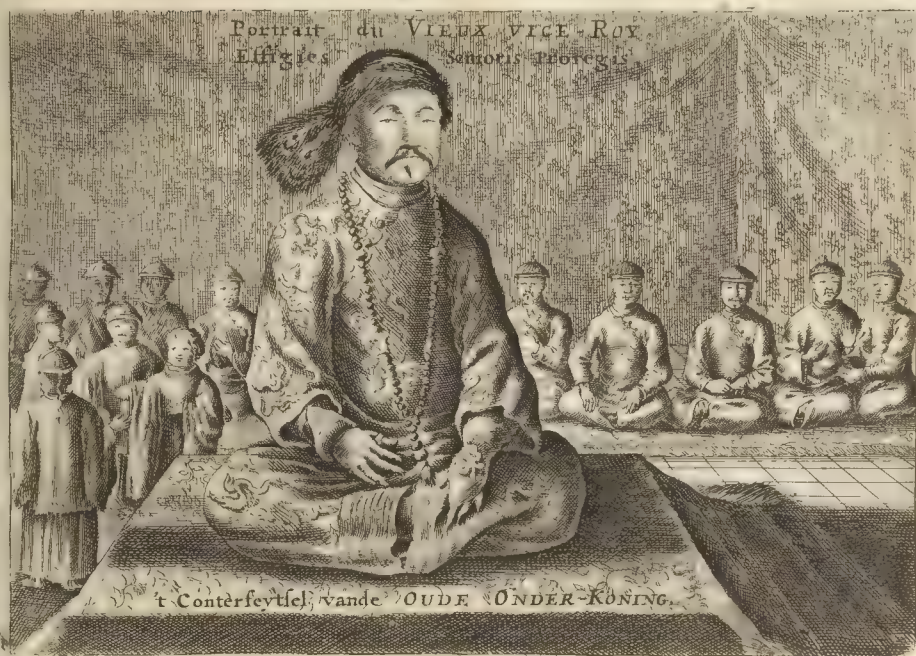 Portrait du VIEUX VICE-ROY
Effigies Senioris Proregis
't Conterfeytsel, vande OUDE ONDER-KONING.